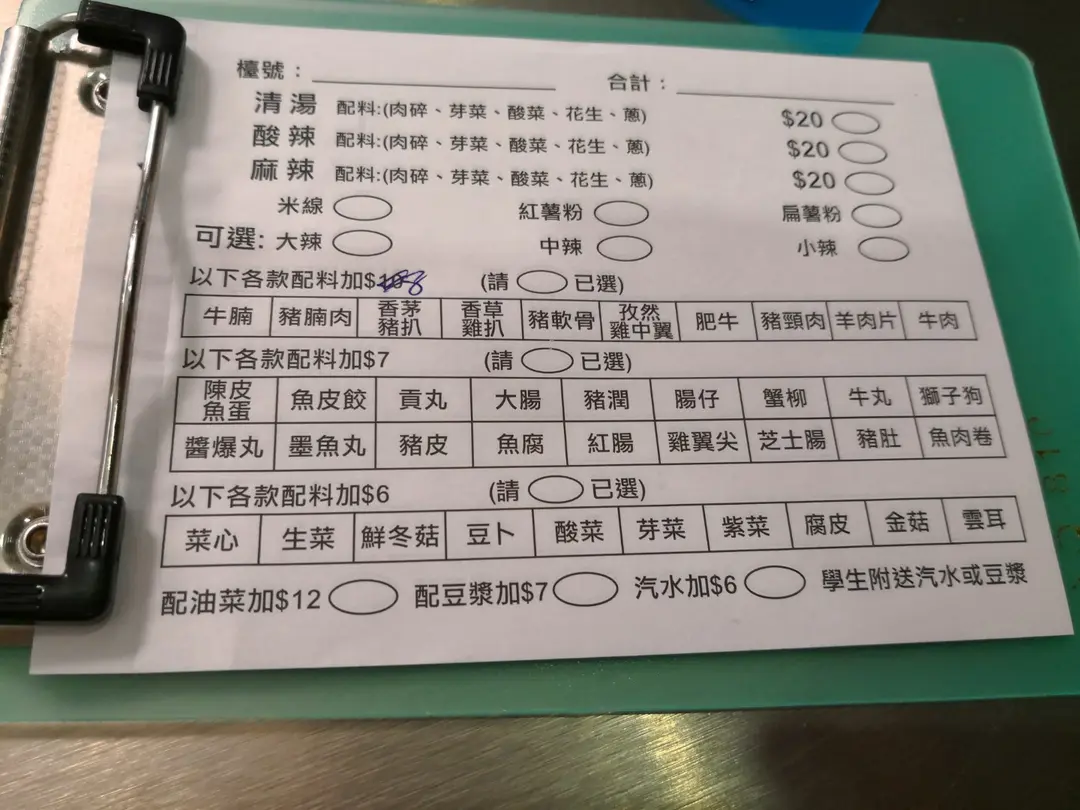 檯號： 合計：
清湯 配料:(肉碎、芽菜、酸菜、花生、蔥) $20
酸辣 配料:(肉碎、芽菜、酸菜、花生、蔥) $20
麻辣 配料:(肉碎、芽菜、酸菜、花生、蔥) $20
米線 紅薯粉 扁薯粉
可選: 大辣 中辣 小辣
以下各款配料加$ 8 (請 已選)
牛腩 豬腩肉 香茅豬扒 香草雞扒 豬軟骨 孜然雞中翼 肥牛 豬頸肉 羊肉片 牛肉
以下各款配料加$7 (請 已選)
陳皮魚蛋 魚皮餃 貢丸 大腸 豬潤 腸仔 蟹柳 牛丸 獅子狗
醬爆丸 墨魚丸 豬皮 魚腐 紅腸 雞翼尖 芝士腸 豬肚 魚肉卷
以下各款配料加$6 (請 已選)
菜心 生菜 鮮冬菇 豆卜 酸菜 芽菜 紫菜 腐皮 金菇 雲耳
配油菜加$12 配豆漿加$7 汽水加$6 學生附送汽水或豆漿